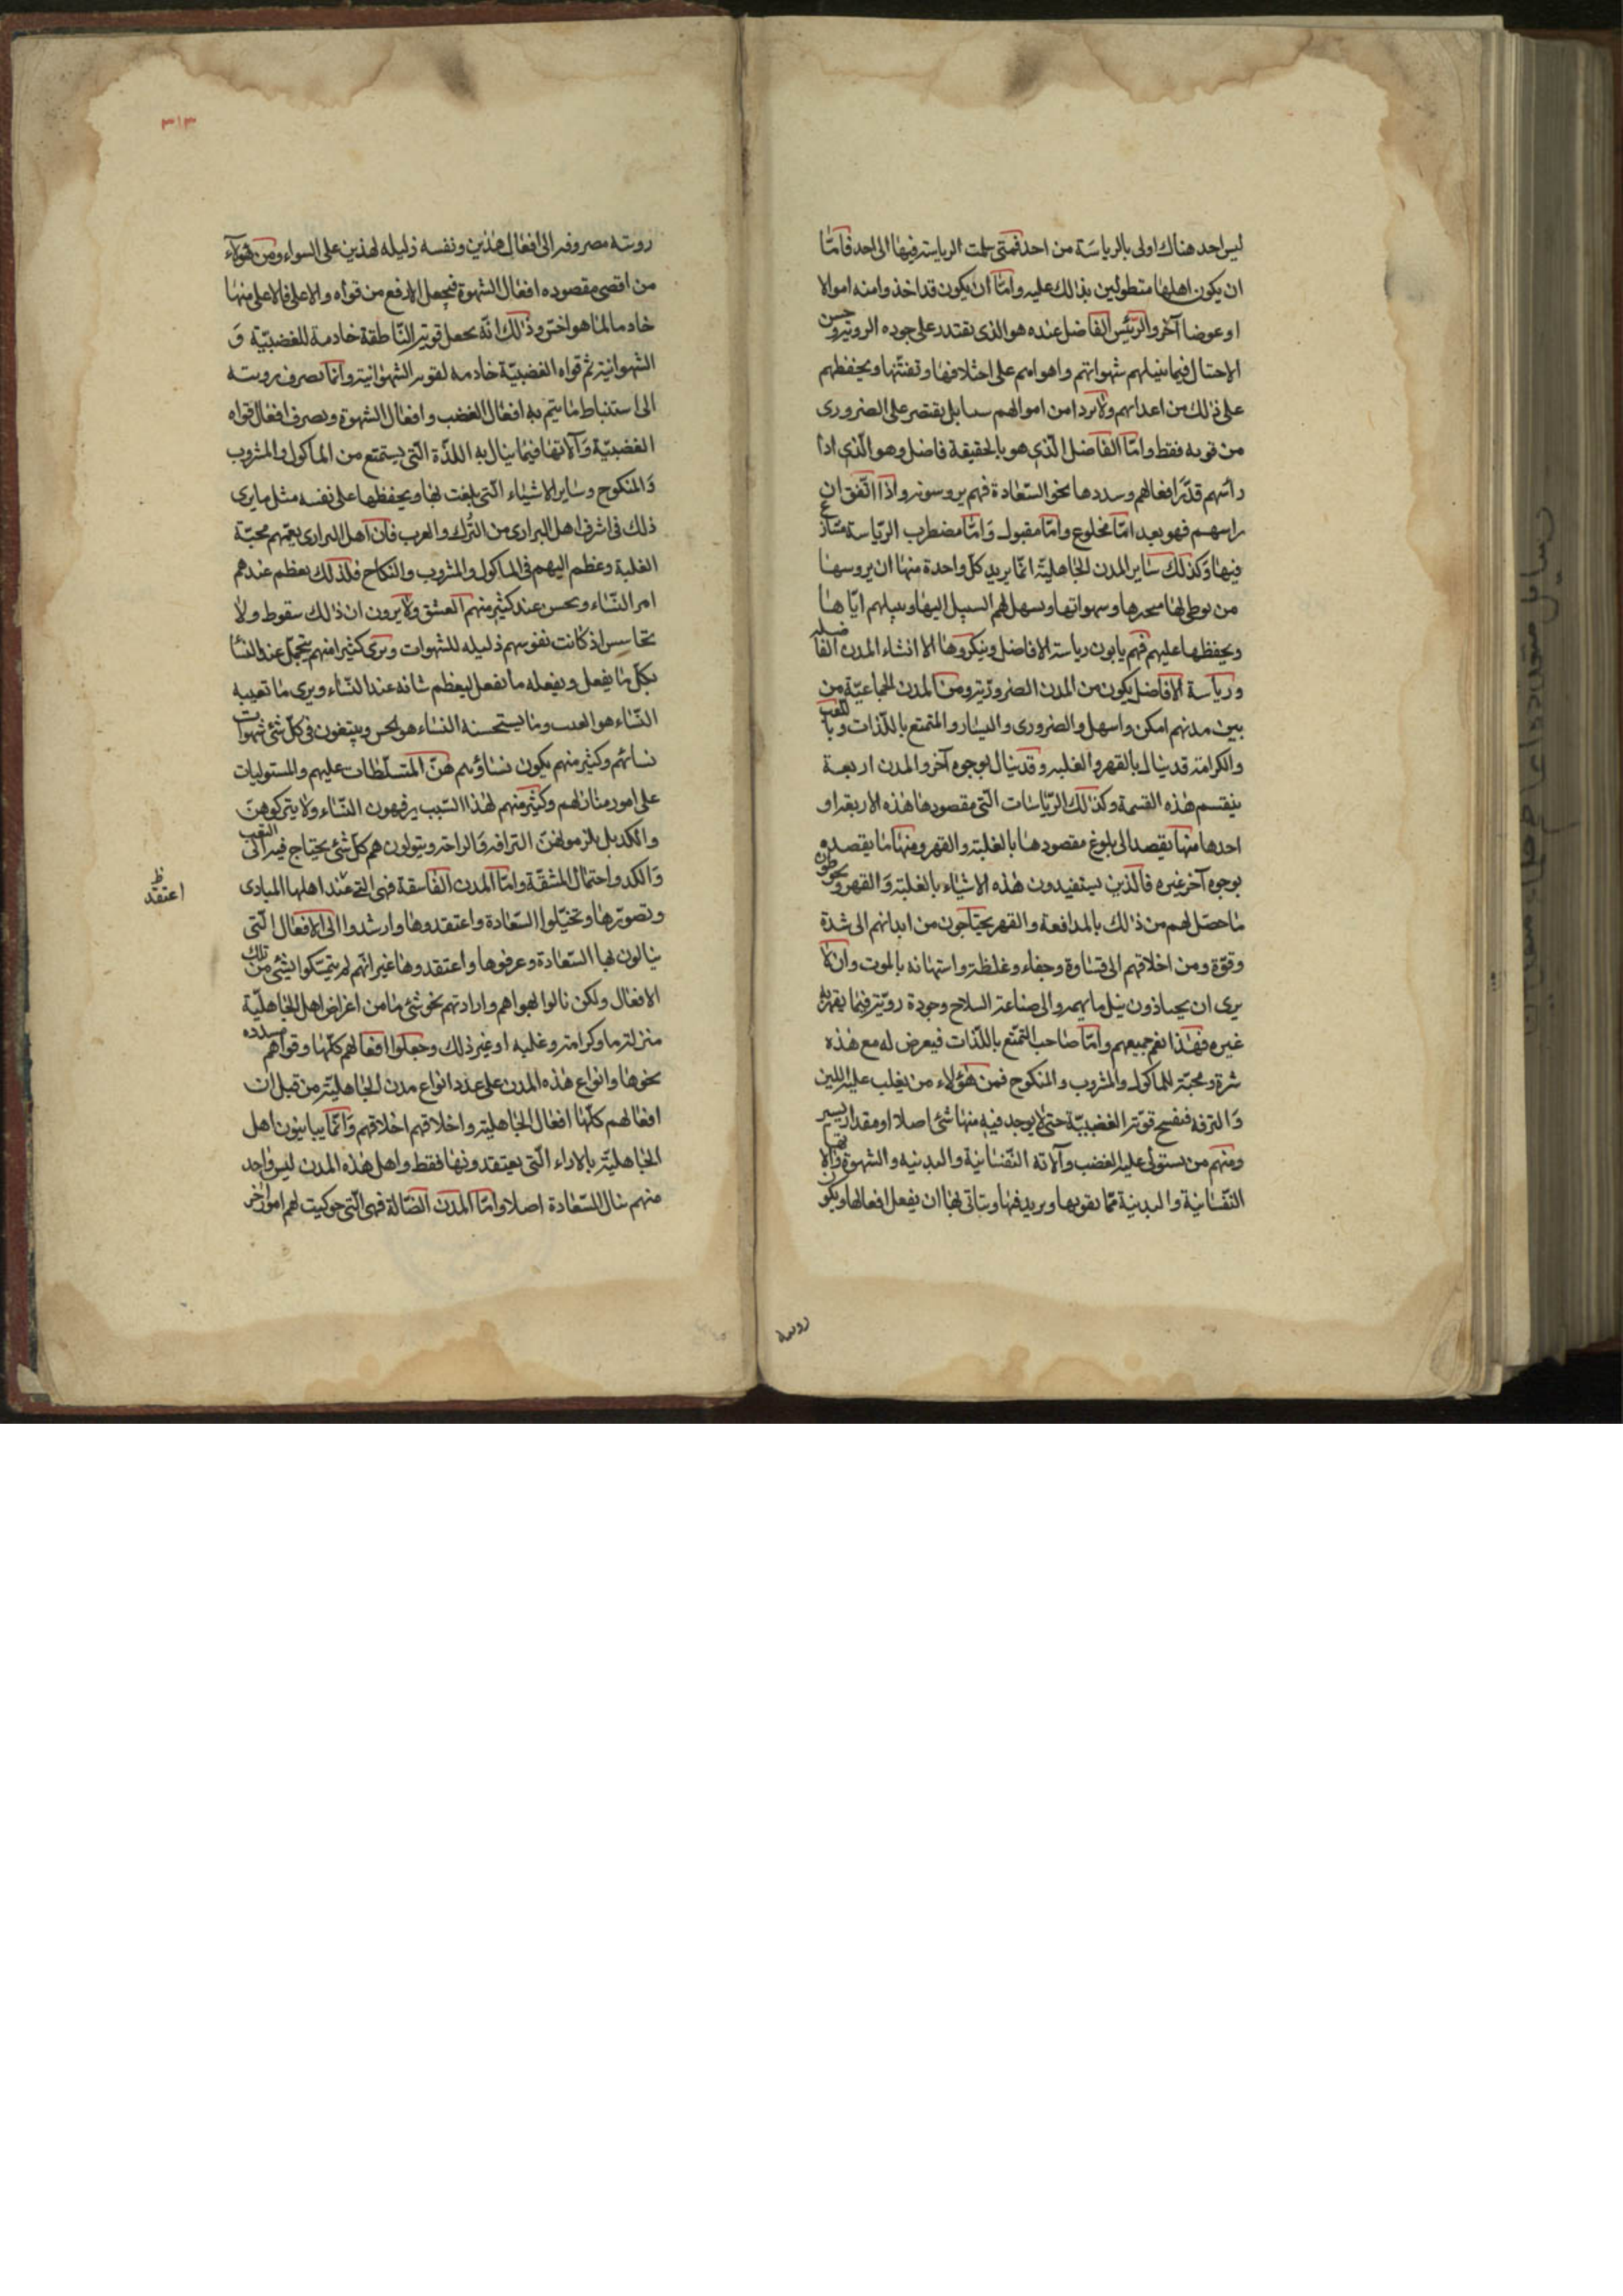 ليس احد هناك اولى بالرياسة من احد فمتى سلمت الرياسة فيها الى احد فامّا
ان يكون اهلها متطولين بذلك عليه وامّا ان يكون قد اخذ وامنه اموالا
او عوضا آخر والرئيس الفاضل عنده هو الذى يقتدر على جوده الروية وحسن
الاحتيال فيما ينيلهم شهواتهم واهواهم على اختلافها وتفننها ويحفظهم
على ذلك من اعدائهم ولا يرد امن اموالهم سيا بل يقتصر على الضرورى
من قوته فقط وامّا الفاضل الّذى هو بالحقيقة فاضل وهو الّذى اذا
راسهم قدّر افعالهم وسددها نحو السّعادة فهم يروسونه واذا اتّفق ان
راسهم فهو بعد امّا مخلوع وامّا مقبول وامّا مضطرب الرّياسة منازع
فيها وكذلك ساير المدن الجاهليّة انّما يريد كلّ واحدة منها ان يروسها
من يوطى لها وسهواتها ويسهل لهم السبيل اليها وينيلهم ايّاها
ويحفظها عليهم فهم يابون رياسة الافاضل وينكروها الا انشاء المدن الفاضله
ورياسة الافاضل يكون من المدن الضروريّة ومن المدن الجماعيّة من
بين مدنهم امكن واسهل والضرورى واليسار والمتمتع باللّذات وباللعب
والكرامة قد ينال بالقهر والغلبه وقد ينال بوجوه آخر والمدن اربعة
ينقسم هذه القسمة وكذلك الرّياسات الّتى مقصودها هذه الاربعة او
احدها منها يقصد الى بلوغ مقصودها بالغلبة والقهر ومنها ما يقصده
بوجوه آخر غيره فالذين يستفيدون هذه الاشياء بالغلبة والقهر ويحوطون
ما حصل لهم من ذلك بالمدافعة والقهر يحتاجون من ابدانهم الى شدة
وقوّة ومن اخلاقهم الى قساوة وجفاء وغلظة واستهانه بالموت وان لا
يرى ان والى صناعة السلاح وجودة رويّة فيما يقهر به
غيره فهذا نعم جميعهم وامّا صاحب التمتّع باللّذات فيعرض له مع هذه
شرة ومحبّة للماكول والمشروب والمنكوح فمن هؤلاء من يغلب عليه اللين
والترفه فتفسح قوّته الغضبيّة حتى لا يوجد فيه منها شئ اصلا او مقدار يسير
ومنهم من يستولى عليه الغضب وآلاته النّفسانية والبدنيه والشهوة والاتها
النّفسانية والبدنية ممّا يقويها ويزيد فيها ويتاتى لها ان يفعل افعالها ويكون
رويته
٣١٣
رويته مصروفه الى افعال هذين ونفسه ذليله لهذين على السواء ومن هؤلاء
من اقصى مقصوده افعال الشهوة فيجعل الارفع من قواه والاعلى فالاعلى منها
خادما لما هو اخسّ وذلك انّه يجعل قوّته النّاطقة خادمة للغضبيّة و
الشهوانية ثم قواه الغضبيّة خادمه لقوته الشهوانية وانّما يصرف رويته
الى استنباط ما يتم به افعال الغضب وافعال الشهوة ويصرف افعال قواه
الغضبيّة وآلاتها فيما ينال به اللذّة الّتى يستمتع من الماكول والمشروب
والمنكوح وساير الاشياء الّتى بلغت لها ويحفظها على نفسه مثل ما يرى
ذلك فى اشرف اهل البرارى من التُرك والعرب فانّ اهل البرارى يعمّهم محبّة
الغلبة وعظم اليهم فى الماكول والمشروب والنكاح فلذلك يعظم عندهم
امر النّساء ويحسن عند كثير منهم العشق ولا يرون انّ ذلك سقوط ولا
تحاسس اذ كانت نفوسهم ذليله للشهوات وترى كثيرا منهم يتجمّل عند النسا
بكلّ ما يفعل ويفعله ما يفعل ليعظم شانه عند النّساء ويرى ما تعيبه
النّساء هو العيب وما يستحسنه النساء هو الحسن ويبتغون فى كلّ شئ شهوات
نسائهم وكثير منهم يكون نساؤهم هنّ المتسلّطات عليهم والمستوليات
على امور منازلهم وكثير منهم لهذا السّبب يرفهون النّساء ولا يتركوهنّ
والكد بل يلزموهنّ الترافه والراحة ويتولون هم كلّ شئ يحتاج فيه الى التعب
والكد واحتمال المشقّة وامّا المدن الفاسقة فهى الّتى عند اهلها المبادى
اعتقد ظ
وتصوّرها وتخيّلوا السّعادة واعتقدوها وارشدوا الى الافعال الّتى
ينالون بها السّعادة وعرفوها واعتقدوها غير انّهم لم يتمسّكوا بشئ من تلك
الافعال ولكن نالوا بهواهم وارادتهم نحو شئ ما من اغراض اهل الجاهليّة
منزلة ما وكرامة وغلبه او غير ذلك وجعلوا افعالهم كلّها وقواهم مسدده
نحوها وانواع هذه المدن على عدد انواع مدن الجاهليّة من قبل ان
افعالهم كلّها افعال الجاهلية واخلاقهم اخلاقهم وانّما يباينون اهل
الجاهليّة بالاراء الّتى يعتقدونها فقط واهل هذه المدن ليس واحد
منهم ينال السّعادة اصلا وامّا المدن الضّالة فهى الّتى حوكيت لهم امور اخر